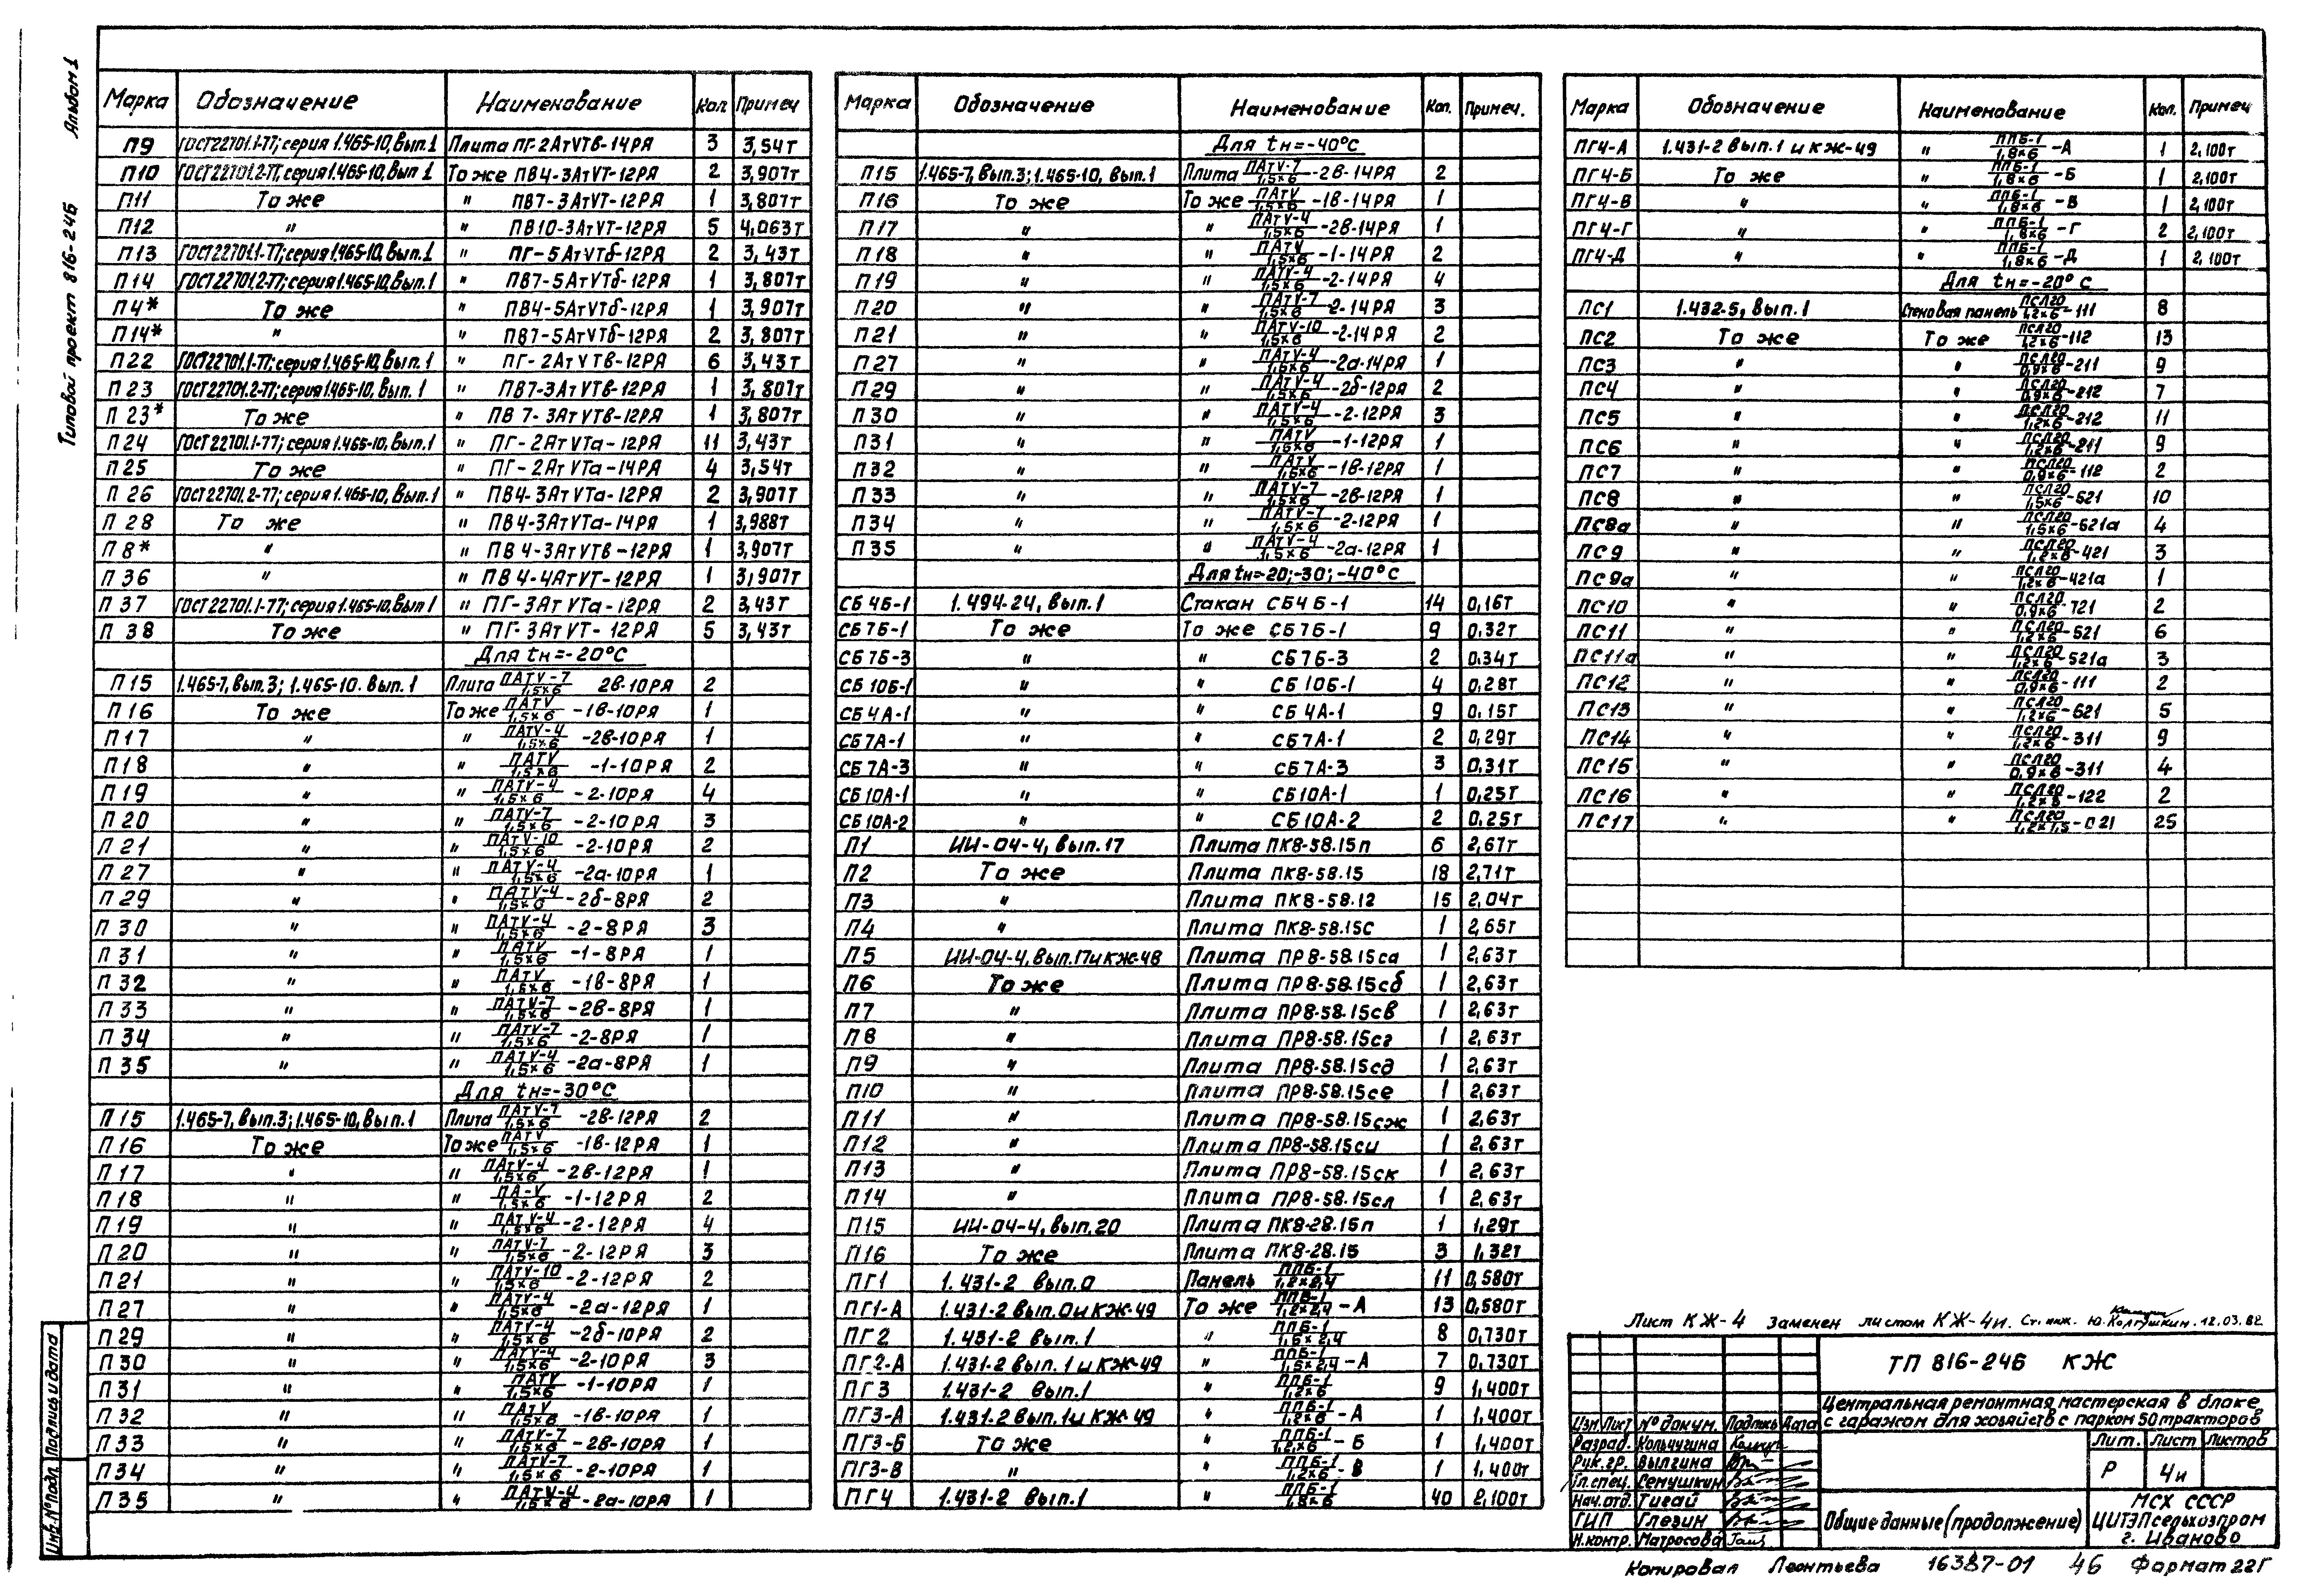 Альбом 1
Типовой проект 816-246
Марка Обозначение Наименование Кол. Примеч
П9 ГОСТ22701.1-77; серия 1.465-10, Вып.1 Плита ПГ-2АтVТв-14РЯ 3 3,54т
П10 ГОСТ22701.2-77, серия 1.465-10, Вып 1 То же ПВ4-3АтVТ-12РЯ 2 3,907т
П11 То же " ПВ7-3АтVТ-12РЯ 1 3,807т
П12 " " ПВ10-3АтVТ-12РЯ 5 4,063т
П13 ГОСТ22701.1-77; серия 1.465-10, Вып.1 " ПГ-5АтVТб-12РЯ 2 3,43т
П14 ГОСТ22701.2-77; серия 1.465-10, Вып.1 " ПВ7-5АтVТб-12РЯ 1 3,807т
П4* То же " ПВ4-5АтVТб-12РЯ 1 3,907т
П14* " " ПВ7-5АтVТб-12РЯ 2 3,807т
П22 ГОСТ22701.1-77; серия 1.465-10, Вып.1 " ПГ-2АтVТв-12РЯ 6 3,43т
П23 ГОСТ22701.2-77; серия 1.465-10, Вып.1 " ПВ7-3АтVТв-12РЯ 1 3,807т
П23* То же " ПВ7-3АтVТв-12РЯ 1 3,807т
П24 ГОСТ22701.1-77; серия 1.465-10, Вып.1 " ПГ-2АтVТа-12РЯ 11 3,43т
П25 То же " ПГ-2АтVТа-14РЯ 4 3,54т
П26 ГОСТ22701.2-77; серия 1.465-10, Вып.1 " ПВ4-3АтVТа-12РЯ 2 3,907т
П28 То же " ПВ4-3АтVТа-14РЯ 1 3,988т
П8* " " ПВ4-3АтVТв-12РЯ 1 3,907т
П36 " " ПВ4-4АтVТ-12РЯ 1 3,907т
П37 ГОСТ22701.1-77; серия 1.465-10, Вып 1 " ПГ-3АтVТа-12РЯ 2 3,43т
П38 То же " ПГ-3АтVТ-12РЯ 5 3,43т
Для tн=-20°С
П15 1.465-7, Вып.3; 1.465-10. Вып.1 Плита ПАтV-7/1,5×6 2в-10РЯ 2
П16 То же То же ПАтV/1,5×6 -1в-10РЯ 1
П17 " " ПАтV-4/1,5×6 -2в-10РЯ 1
П18 " " ПАтV/1,5×6 -1-10РЯ 2
П19 " " ПАтV-4/1,5×6 -2-10РЯ 4
П20 " " ПАтV-7/1,5×6 -2-10РЯ 3
П21 " " ПАтV-10/1,5×6 -2-10РЯ 2
П27 " " ПАтV-4/1,5×6 -2а-10РЯ 1
П29 " " ПАтV-4/1,5×6 -2б-8РЯ 2
П30 " " ПАтV-4/1,5×6 -2-8РЯ 3
П31 " " ПАтV/1,5×6 -1-8РЯ 1
П32 " " ПАтV/1,5×6 -1в-8РЯ 1
П33 " " ПАтV-7/1,5×6 -2в-8РЯ 1
П34 " " ПАтV-7/1,5×6 -2-8РЯ 1
П35 " " ПАтV-4/1,5×6 -2а-8РЯ 1
Для tн=-30°С
П15 1.465-7, Вып.3; 1.465-10, Вып.1 Плита ПАтV-7/1,5×6 -2в-12РЯ 2
П16 То же То же ПАтV/1,5×6 -1в-12РЯ 1
П17 " " ПАтV-4/1,5×6 -2в-12РЯ 1
П18 " " ПА-V/1,5×6 -1-12РЯ 2
П19 " " ПАтV-4/1,5×6 -2-12РЯ 4
П20 " " ПАтV-7/1,5×6 -2-12РЯ 3
П21 " " ПАтV-10/1,5×6 -2-12РЯ 2
П27 " " ПАтV-4/1,5×6 -2а-12РЯ 1
П29 " " ПАтV-4/1,5×6 -2б-10РЯ 2
П30 " " ПАтV-4/1,5×6 -2-10РЯ 3
П31 " " ПАтV/1,5×6 -1-10РЯ 1
П32 " " ПАтV/1,5×6 -1в-10РЯ 1
П33 " " ПАтV-7/1,5×6 -2в-10РЯ 1
П34 " " ПАтV-7/1,5×6 -2-10РЯ 1
П35 " " ПАтV-4/1,5×6 -2а-10РЯ 1
Марка Обозначение Наименование Кол. Примеч.
Для tн=-40°С
П15 1.465-7, Вып.3; 1.465-10, Вып.1 Плита ПАтV-7/1,5×6 -2в-14РЯ 2
П16 То же То же ПАтV/1,5×6 -1в-14РЯ 1
П17 " " ПАтV-4/1,5×6 -2в-14РЯ 1
П18 " " ПАтV/1,5×6 -1-14РЯ 2
П19 " " ПАтV-4/1,5×6 -2-14РЯ 4
П20 " " ПАтV-7/1,5×6 -2-14РЯ 3
П21 " " ПАтV-10/1,5×6 -2-14РЯ 2
П27 " " ПАтV-4/1,5×6 -2а-14РЯ 1
П29 " " ПАтV-4/1,5×6 -2б-12РЯ 2
П30 " " ПАтV-4/1,5×6 -2-12РЯ 3
П31 " " ПАтV/1,5×6 -1-12РЯ 1
П32 " " ПАтV/1,5×6 -1в-12РЯ 1
П33 " " ПАтV-7/1,5×6 -2в-12РЯ 1
П34 " " ПАтV-7/1,5×6 -2-12РЯ 1
П35 " " ПАтV-4/1,5×6 -2а-12РЯ 1
Для tн=-20;-30;-40°С
СБ4Б-1 1.494-24, Вып.1 Стакан СБ4Б-1 14 0,16т
СБ7Б-1 То же То же СБ7Б-1 9 0,32т
СБ7Б-3 " " СБ7Б-3 2 0.34т
СБ10Б-1 " " СБ10Б-1 4 0,28т
СБ4А-1 " " СБ4А-1 9 0,15т
СБ7А-1 " " СБ7А-1 2 0,29т
СБ7А-3 " " СБ7А-3 3 0.31т
СБ10А-1 " " СБ10А-1 1 0,25т
СБ10А-2 " " СБ10А-2 2 0.25т
П1 ИИ-04-4, Вып.17 Плита ПК8-58.15п 6 2,67т
П2 То же Плита ПК8-58.15 18 2,71т
П3 " Плита ПК8-58.12 15 2,04т
П4 " Плита ПК8-58.15С 1 2,65т
П5 ИИ-04-4, Вып.17 и КЖ-48 Плита ПР8-58.15са 1 2,63т
П6 То же Плита ПР8-58.15сб 1 2,63т
П7 " Плита ПР8-58.15св 1 2,63т
П8 " Плита ПР8-58.15сг 1 2,63т
П9 " Плита ПР8-58.15сд 1 2,63т
П10 " Плита ПР8-58.15се 1 2,63т
П11 " Плита ПР8-58.15сж 1 2,63т
П12 " Плита ПР8-58.15си 1 2,63т
П13 " Плита ПР8-58.15ск 1 2,63т
П14 " Плита ПР8-58.15сл 1 2,63т
П15 ИИ-04-4, Вып.20 Плита ПК8-28.15п 1 1,29т
П16 То же Плита ПК8-28.15 3 1,32т
ПГ1 1.431-2 Вып.0 Панель ППБ-1/1,2×2,4 11 0,580т
ПГ1-А 1.431-2 Вып.0 и КЖ-49 То же ППБ-1/1,2×2,4 -А 13 0,580т
ПГ2 1.431-2 Вып.1 " ППБ-1/1,5×2,4 8 0,730т
ПГ2-А 1.431-2 Вып.1 и КЖ-49 " ППБ-1/1,5×2,4 -А 7 0,730т
ПГ3 1.431-2 Вып.1 " ППБ-1/1,2×6 9 1,400т
ПГ3-А 1.431-2 Вып.1 и КЖ-49 " ППБ-1/1,2×6 -А 1 1,400т
ПГ3-Б То же " ППБ-1/1,2×6 -Б 1 1,400т
ПГ3-В " " ППБ-1/1,2×6 -В 1 1,400т
ПГ4 1.431-2 Вып.1 " ППБ-1/1,8×6 40 2,100т
Марка Обозначение Наименование Кол. Примеч
ПГ4-А 1.431-2 Вып.1 и КЖ-49 " ППБ-1/1,8×6 -А 1 2,100т
ПГ4-Б То же " ППБ-1/1,8×6 -Б 1 2,100т
ПГ4-В " " ППБ-1/1,8×6 -В 1 2,100т
ПГ4-Г " " ППБ-1/1,8×6 -Г 2 2,100т
ПГ4-Д " " ППБ-1/1,8×6 -Д 1 2,100т
Для tн=-20°С
ПС1 1.432-5, Вып.1 Стеновая панель ПСЛ20/1,2×6 -111 8
ПС2 То же То же ПСЛ20/1,2×6 -112 13
ПС3 " " ПСЛ20/0,9×6 -211 9
ПС4 " " ПСЛ20/0,9×6 -212 7
ПС5 " " ПСЛ20/1,2×6 -212 11
ПС6 " " ПСЛ20/1,2×6 -211 9
ПС7 " " ПСЛ20/0,9×6 -112 2
ПС8 " " ПСЛ20/1,5×6 -521 10
ПС8а " " ПСЛ20/1,5×6 -521а 4
ПС9 " " ПСЛ20/1,2×6 -421 3
ПС9а " " ПСЛ20/1,2×6 -421а 1
ПС10 " " ПСЛ20/0,9×6 -721 2
ПС11 " " ПСЛ20/1,2×6 -521 6
ПС11а " " ПСЛ20/1,2×6 -521а 3
ПС12 " " ПСЛ20/0,9×6 -111 2
ПС13 " " ПСЛ20/1,2×6 -621 5
ПС14 " " ПСЛ20/1,2×6 -311 9
ПС15 " " ПСЛ20/0,9×6 -311 4
ПС16 " " ПСЛ20/1,2×6 -122 2
ПС17 " " ПСЛ20/1,2×1,5 -021 25
Лист КЖ-4 заменен листом КЖ-4и. Ст. инж. Ю. Колтушкин. 12.03.82
ТП 816-246 КЖ
Центральная ремонтная мастерская в блоке
с гаражом для хозяйств с парком 50 тракторов
Изм. Лист № докум. Подпись Дата
Разраб. Кольчугина
Рук.гр. Вылгина
Гл.спец. Семушкин
Нач.отд. Тигай
ГИП Глезин
Н.контр. Матросова
Лит. Лист Листов
Р 4и
Общие данные (продолжение)
МСХ СССР
ЦИТЭПсельхозпром
г. Иваново
Инв. № подл. Подпись и дата
Копировал Леонтьева 16387-01 46 Формат 22Г